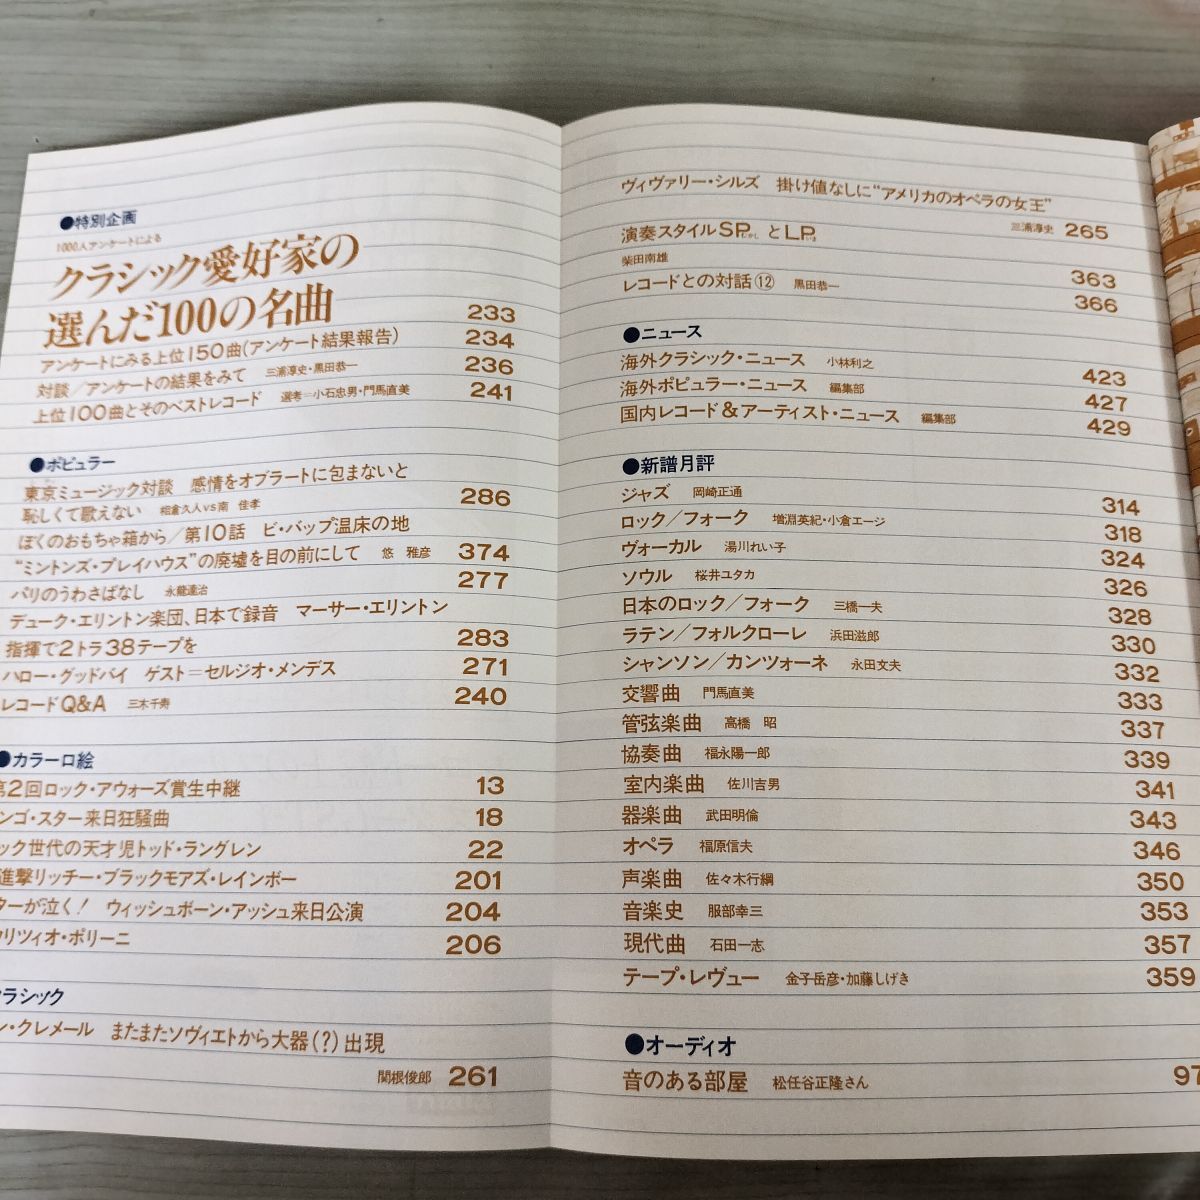 ●特別企画
1000人アンケートによる
クラシック愛好家の
選んだ100の名曲 233
アンケートにみる上位150曲(アンケート結果報告) 234
対談／アンケートの結果をみて 三浦淳史・黒田恭一 236
上位100曲とそのベストレコード 選考＝小石忠男・門馬直美 241
●ポピュラー
東京ミュージック対談 感情をオブラートに包まないと
恥しくて歌えない 相倉久人vs南 佳孝 286
ぼくのおもちゃ箱から／第10話 ビ・バップ温床の地
“ミントンズ・プレイハウス”の廃墟を目の前にして 悠 雅彦 374
パリのうわさばなし 永瀧達治 277
デューク・エリントン楽団、日本で録音 マーサー・エリントン
指揮で2トラ38テープを 283
ハロー・グッドバイ ゲスト＝セルジオ・メンデス 271
レコードQ&A 三木千寿 240
●カラー口絵
第2回ロック・アウォーズ賞生中継 13
ンゴ・スター来日狂騒曲 18
ック世代の天才児トッド・ラングレン 22
進撃リッチー・ブラックモアズ・レインボー 201
ターが泣く！ ウィッシュボーン・アッシュ来日公演 204
ウリツィオ・ポリーニ 206
クラシック
ン・クレメール またまたソヴィエトから大器(？)出現
関根俊郎 261
ヴィヴァリー・シルズ 掛け値なしに“アメリカのオペラの女王”
三浦淳史 265
演奏スタイルSPむかしとLPいま
柴田南雄 363
レコードとの対話⑫ 黒田恭一 366
●ニュース
海外クラシック・ニュース 小林利之 423
海外ポピュラー・ニュース 編集部 427
国内レコード＆アーティスト・ニュース 編集部 429
●新譜月評
ジャズ 岡崎正通 314
ロック／フォーク 増淵英紀・小倉エージ 318
ヴォーカル 湯川れい子 324
ソウル 桜井ユタカ 326
日本のロック／フォーク 三橋一夫 328
ラテン／フォルクローレ 浜田滋郎 330
シャンソン／カンツォーネ 永田文夫 332
交響曲 門馬直美 333
管弦楽曲 高橋 昭 337
協奏曲 福永陽一郎 339
室内楽曲 佐川吉男 341
器楽曲 武田明倫 343
オペラ 福原信夫 346
声楽曲 佐々木行綱 350
音楽史 服部幸三 353
現代曲 石田一志 357
テープ・レヴュー 金子岳彦・加藤しげき 359
●オーディオ
音のある部屋 松任谷正隆さん 97